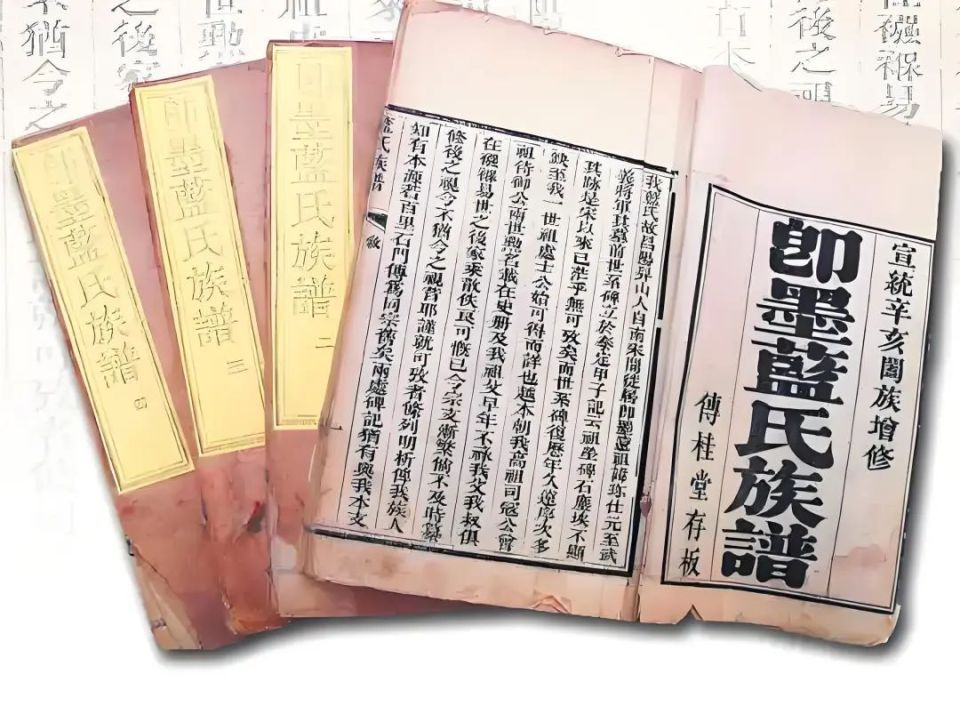 宣統辛亥闔族增修
即墨藍氏族譜
傳桂堂存板
我藍氏故昌陽昇山人自南宋間徙居即墨遠祖諱珎仕元至武
義將軍其墓前世系碑立於泰定甲子記云祖塋碑石塵埃不顯
其跡是宋以來已浩乎無可攷矣而世系碑復歷年久遠序次多
缺至我一世祖處士公始可得而詳也越本朝我高祖司寇公曾
祖侍御公兩世勲名載在史冊及我祖父早年不祿我父我叔俱
在襁褓易世之後家乘散佚良可慨已今宗支漸繁倘不及時纂
修後之視今不猶今之視昔耶謹就可攷者條列明析俾我族人
知有本源若百里石門傳舊同宗舊矣兩處碑記猶有與我本支
藍氏族譜
敘
即墨藍氏族譜 二
即墨藍氏族譜 三
即墨藍氏族譜 四